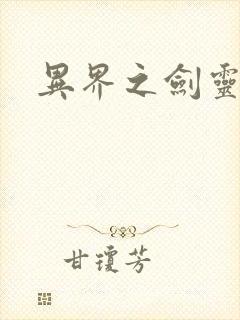 異界之劍靈
甘瓊芳